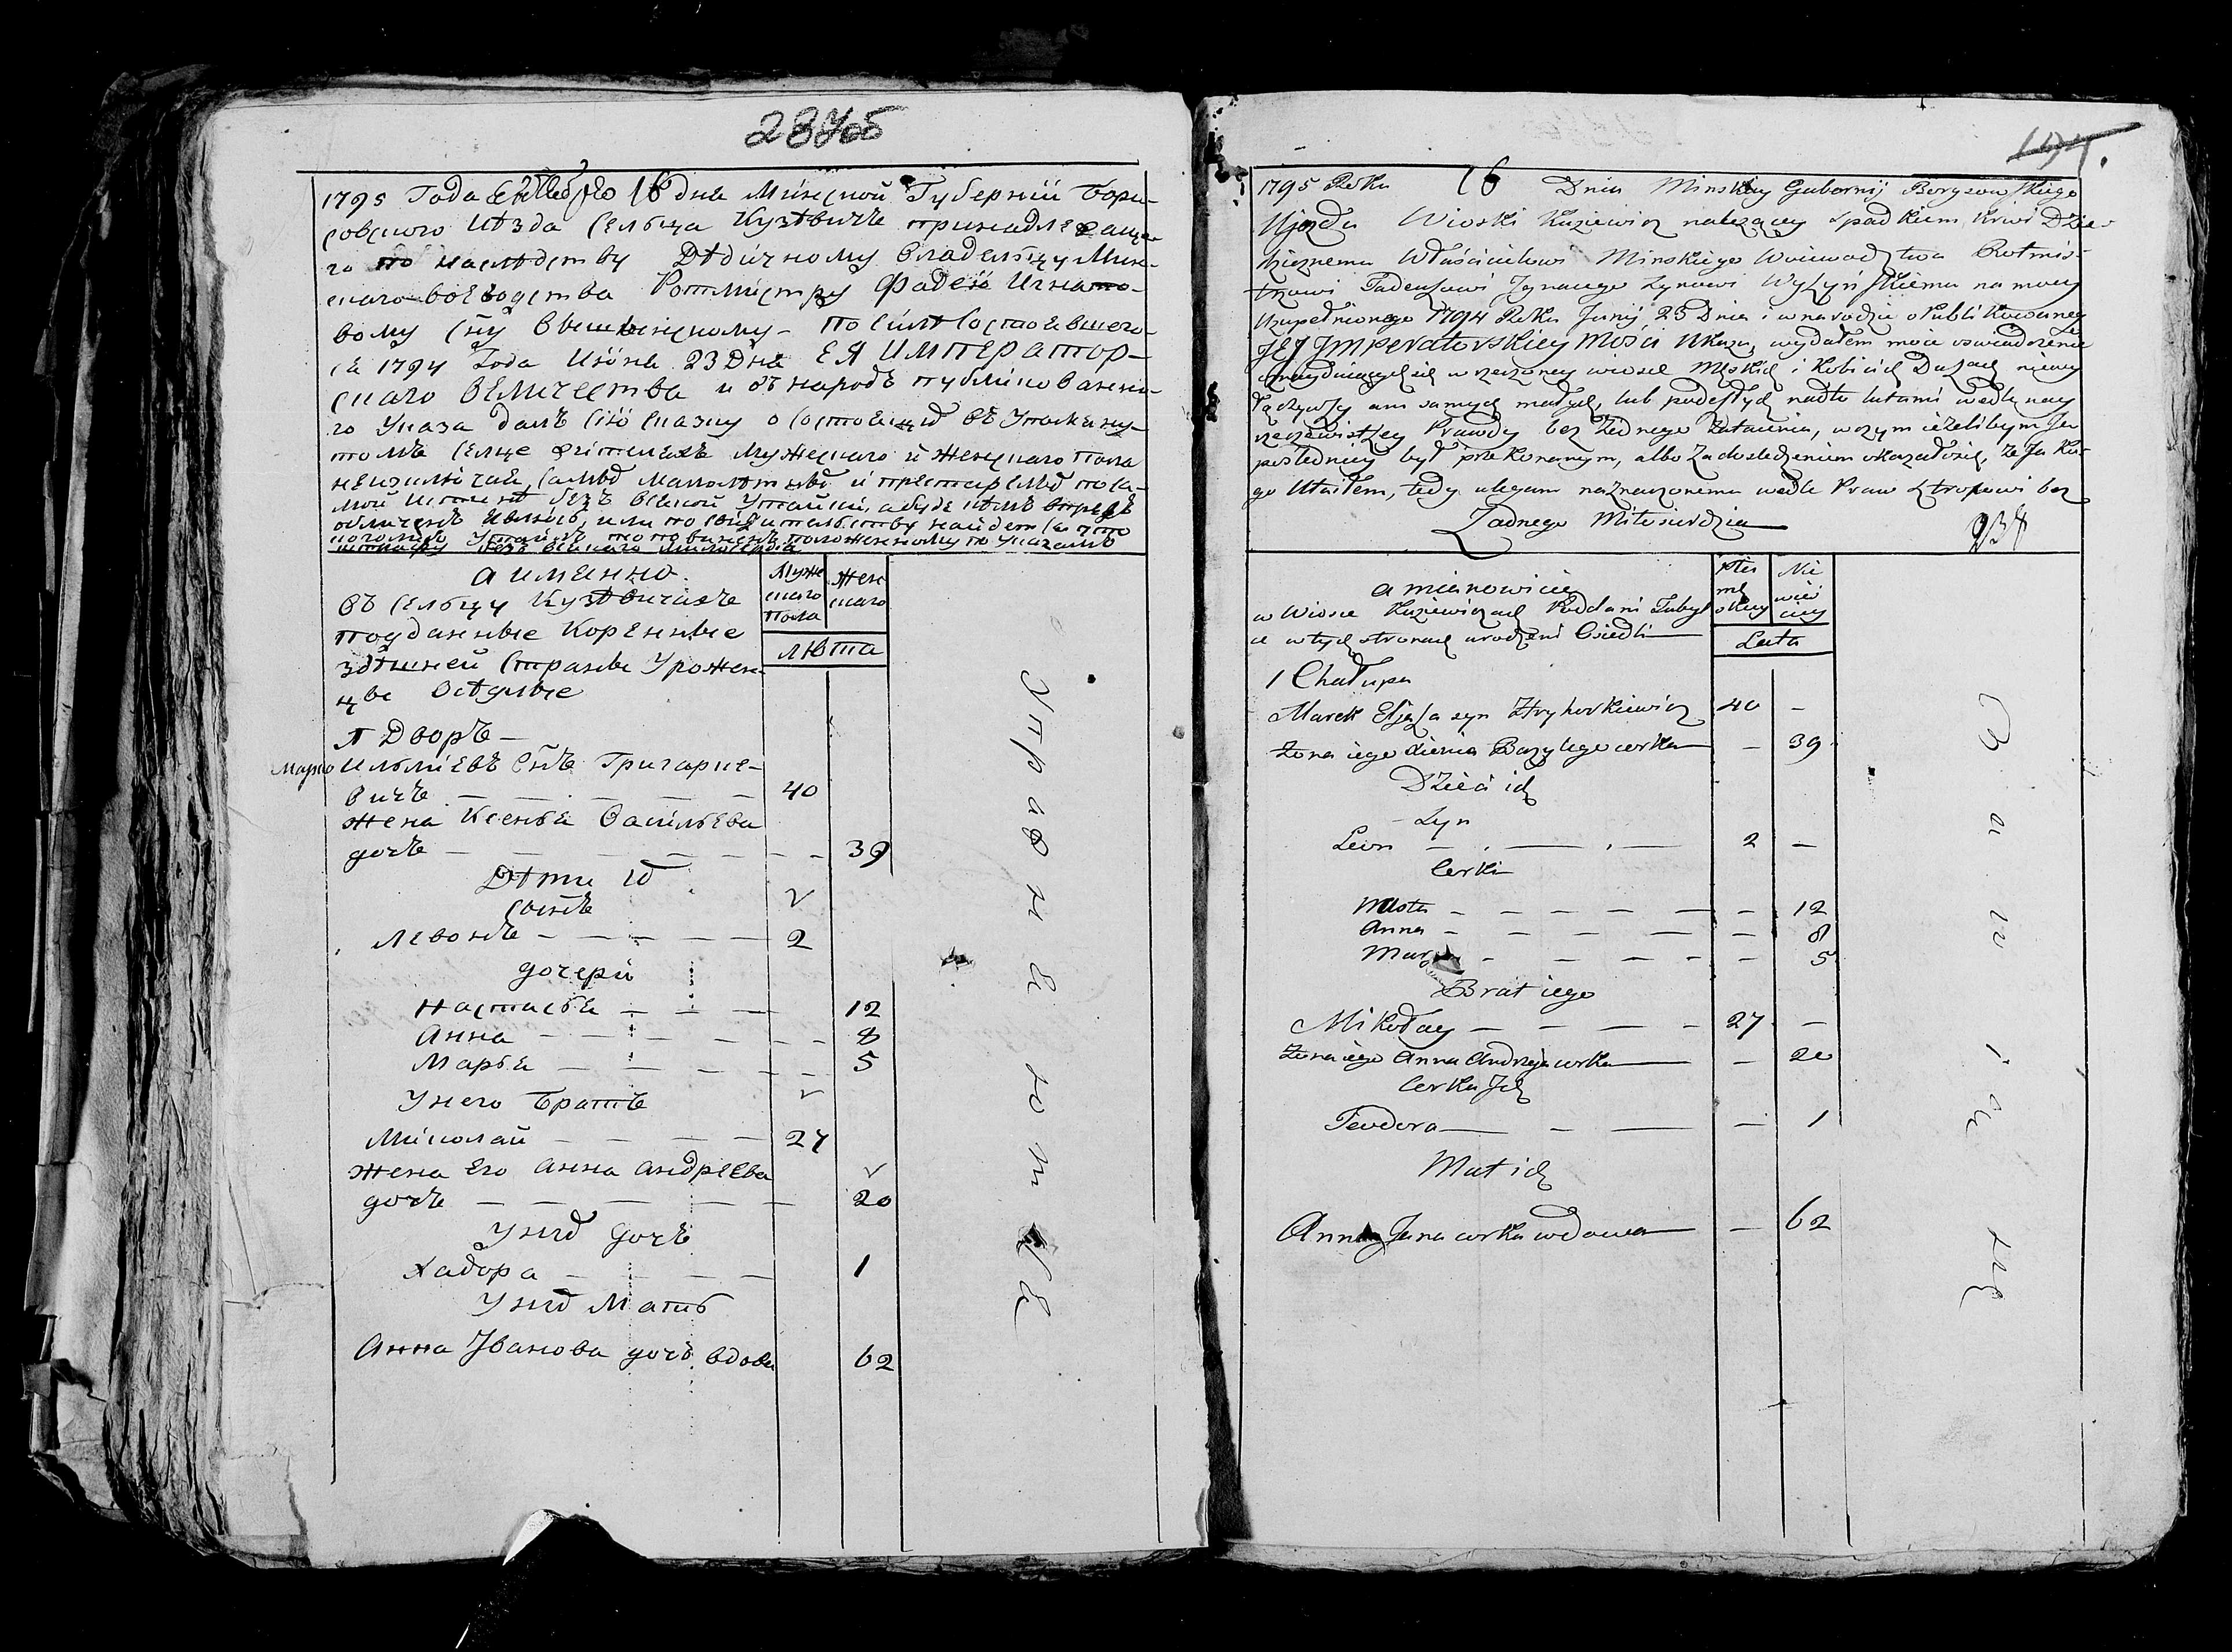 287об
1795 Года 16 дня Минской Губернии Бори-
совского Уѣзда Сельца Кузѣвичъ принадлежаща-
го по наслѣдству Дѣдичному Владельцу Мин-
скаго воеводства Ротмистру Фадею Игнато-
вому сну Вышинскому - По силѣ Состоявшего-
ся 1794 Года Июня 23 Дня ЕЯ ИМПЕРАТОР-
скаго ВЕЛИЧЕСТВА и въ народъ публикованна-
го Указа далъ Сию Сказку о Состоящихъ въ Упомяну-
томъ Сельце жителяхъ Мужескаго и Женскаго Пола
самыхъ малолѣтныхъ и престарелыхъ по са-
мой истинѣ безъ всякой Утайки, а буде
обличенъ явлюсь, или по свидѣтельству найдется что
кого либо Утаилъ то повиненъ положенному по Указамъ
безъ всякаго милосердія
а имянно.
въ Сельцу Кузѣвичахъ
подданные Коренные
здѣшней Страны Урожен-
цы Осѣдлые
Муже
скаго
Пола
Жен
скаго
лѣта
1 Дворъ -
Марко Ильлиевъ Снъ Григорке-
вичъ - - - - 40
Жена Ксенья Васильева
дочь - - - - 39
Дѣти ихъ
Сынъ
Левонъ - - - - 2
дочери
Настасья - - - 12
Анна - - - - 8
Марья - - - - 5
У него Братъ
Миколай - - - - 27
Жена Его Анна Андреева
дочь - - - - 20
У нихъ дочь
Хадора - - - - 1
У нихъ Мать
Анна Иванова дочь вдова 62
1795 Roku 16 Dnia Minskiey Gubernij Borysowskiego
Ujezdu Wioski Kuziewicz należącey spadkiem krwi Dzie-
dzicznemu Właścicielowi Minskiego Woiewodztwa Rotmis-
trzowi Tadeuszowi Jgnacego Synowi Wyżyńskiemu na mocy
Uzupełnionego 1794 Roku Junij 23 Dnia i w narodzie oPublikowaney
JEJ JMPERATORSKIEY Mości Ukazu, wydałem moie oswiadczenie
znayduiących się w rzeczoney wiosce Męskich i Kobiecich Duszach niewy
łączywszy ani samych małych, lub podeszłych nadto latami według nay
rzeczewistszey Prawdy bez Żadnego Zataienia, w czym ieżelibym Ja
poslednicy był przekonanym, albo za dosledzeniem okazałosię, że Ja ko-
go Utaiłem, tedy ulegam naznaczonemu wedle Praw sztrofowi bez
Żadnego Miłosierdzia
238
a mianowicie
w Wiosce Kuziewiczach Poddani Tubyl
ce w tych stronach urodzeni Osiedli
płci
mę
skiey
Nie
wie
ciey
Lata
1 Chałupa
Marek Eljasza syn Hryhorkiewicz 40 -
Żona iego Xienia Bazylego corka - 39
Dzieci ich
Syn
Leon - - - 2 -
Corki
Nasta - - - - 12
Anna - - - - 8
Mar - - - - 5
Brat iego
Mikołay - - - - 27 -
Żona iego Anna Andrzeja corka - 20
Corka Jch
Teodora - - - 1
Mat ich
Anna Jana corka wdowa - 62